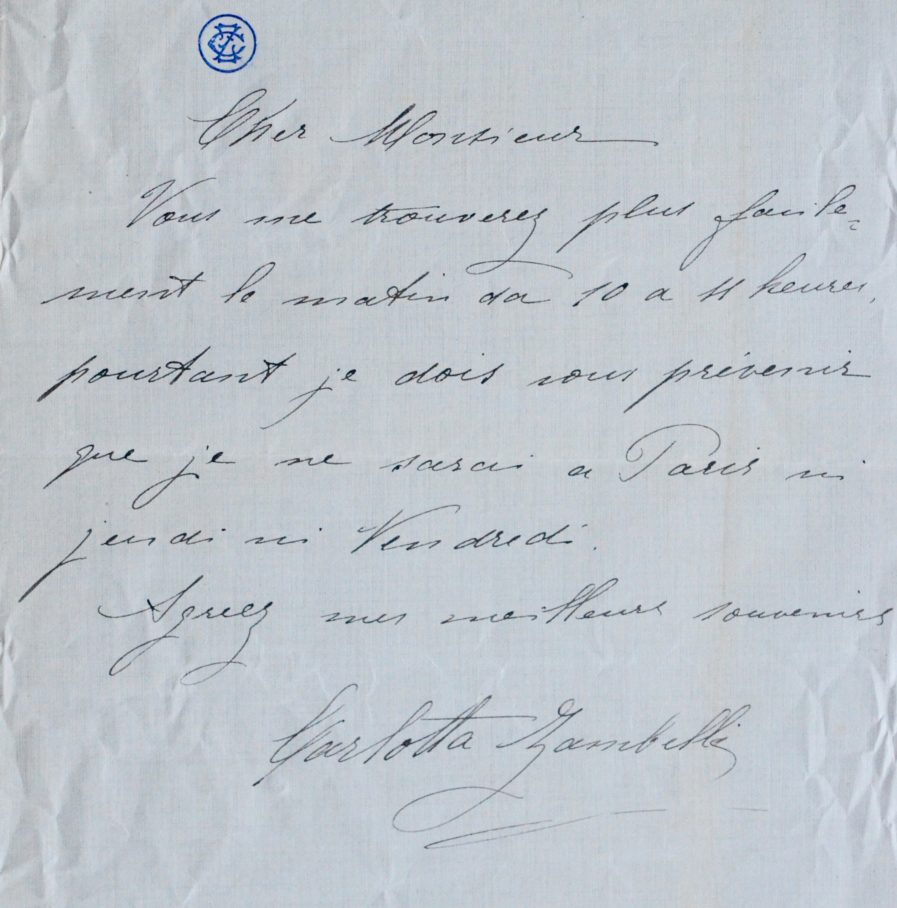 Cher Monsieur
Vous me trouverez plus facile=
ment le matin da 10 a 11 heures,
pourtant je dois vous prévenir
que je ne sarai a Paris ni
jeudi ni Vendredi.
Agréez mes meilleurs souvenirs
Carlotta Zambelli